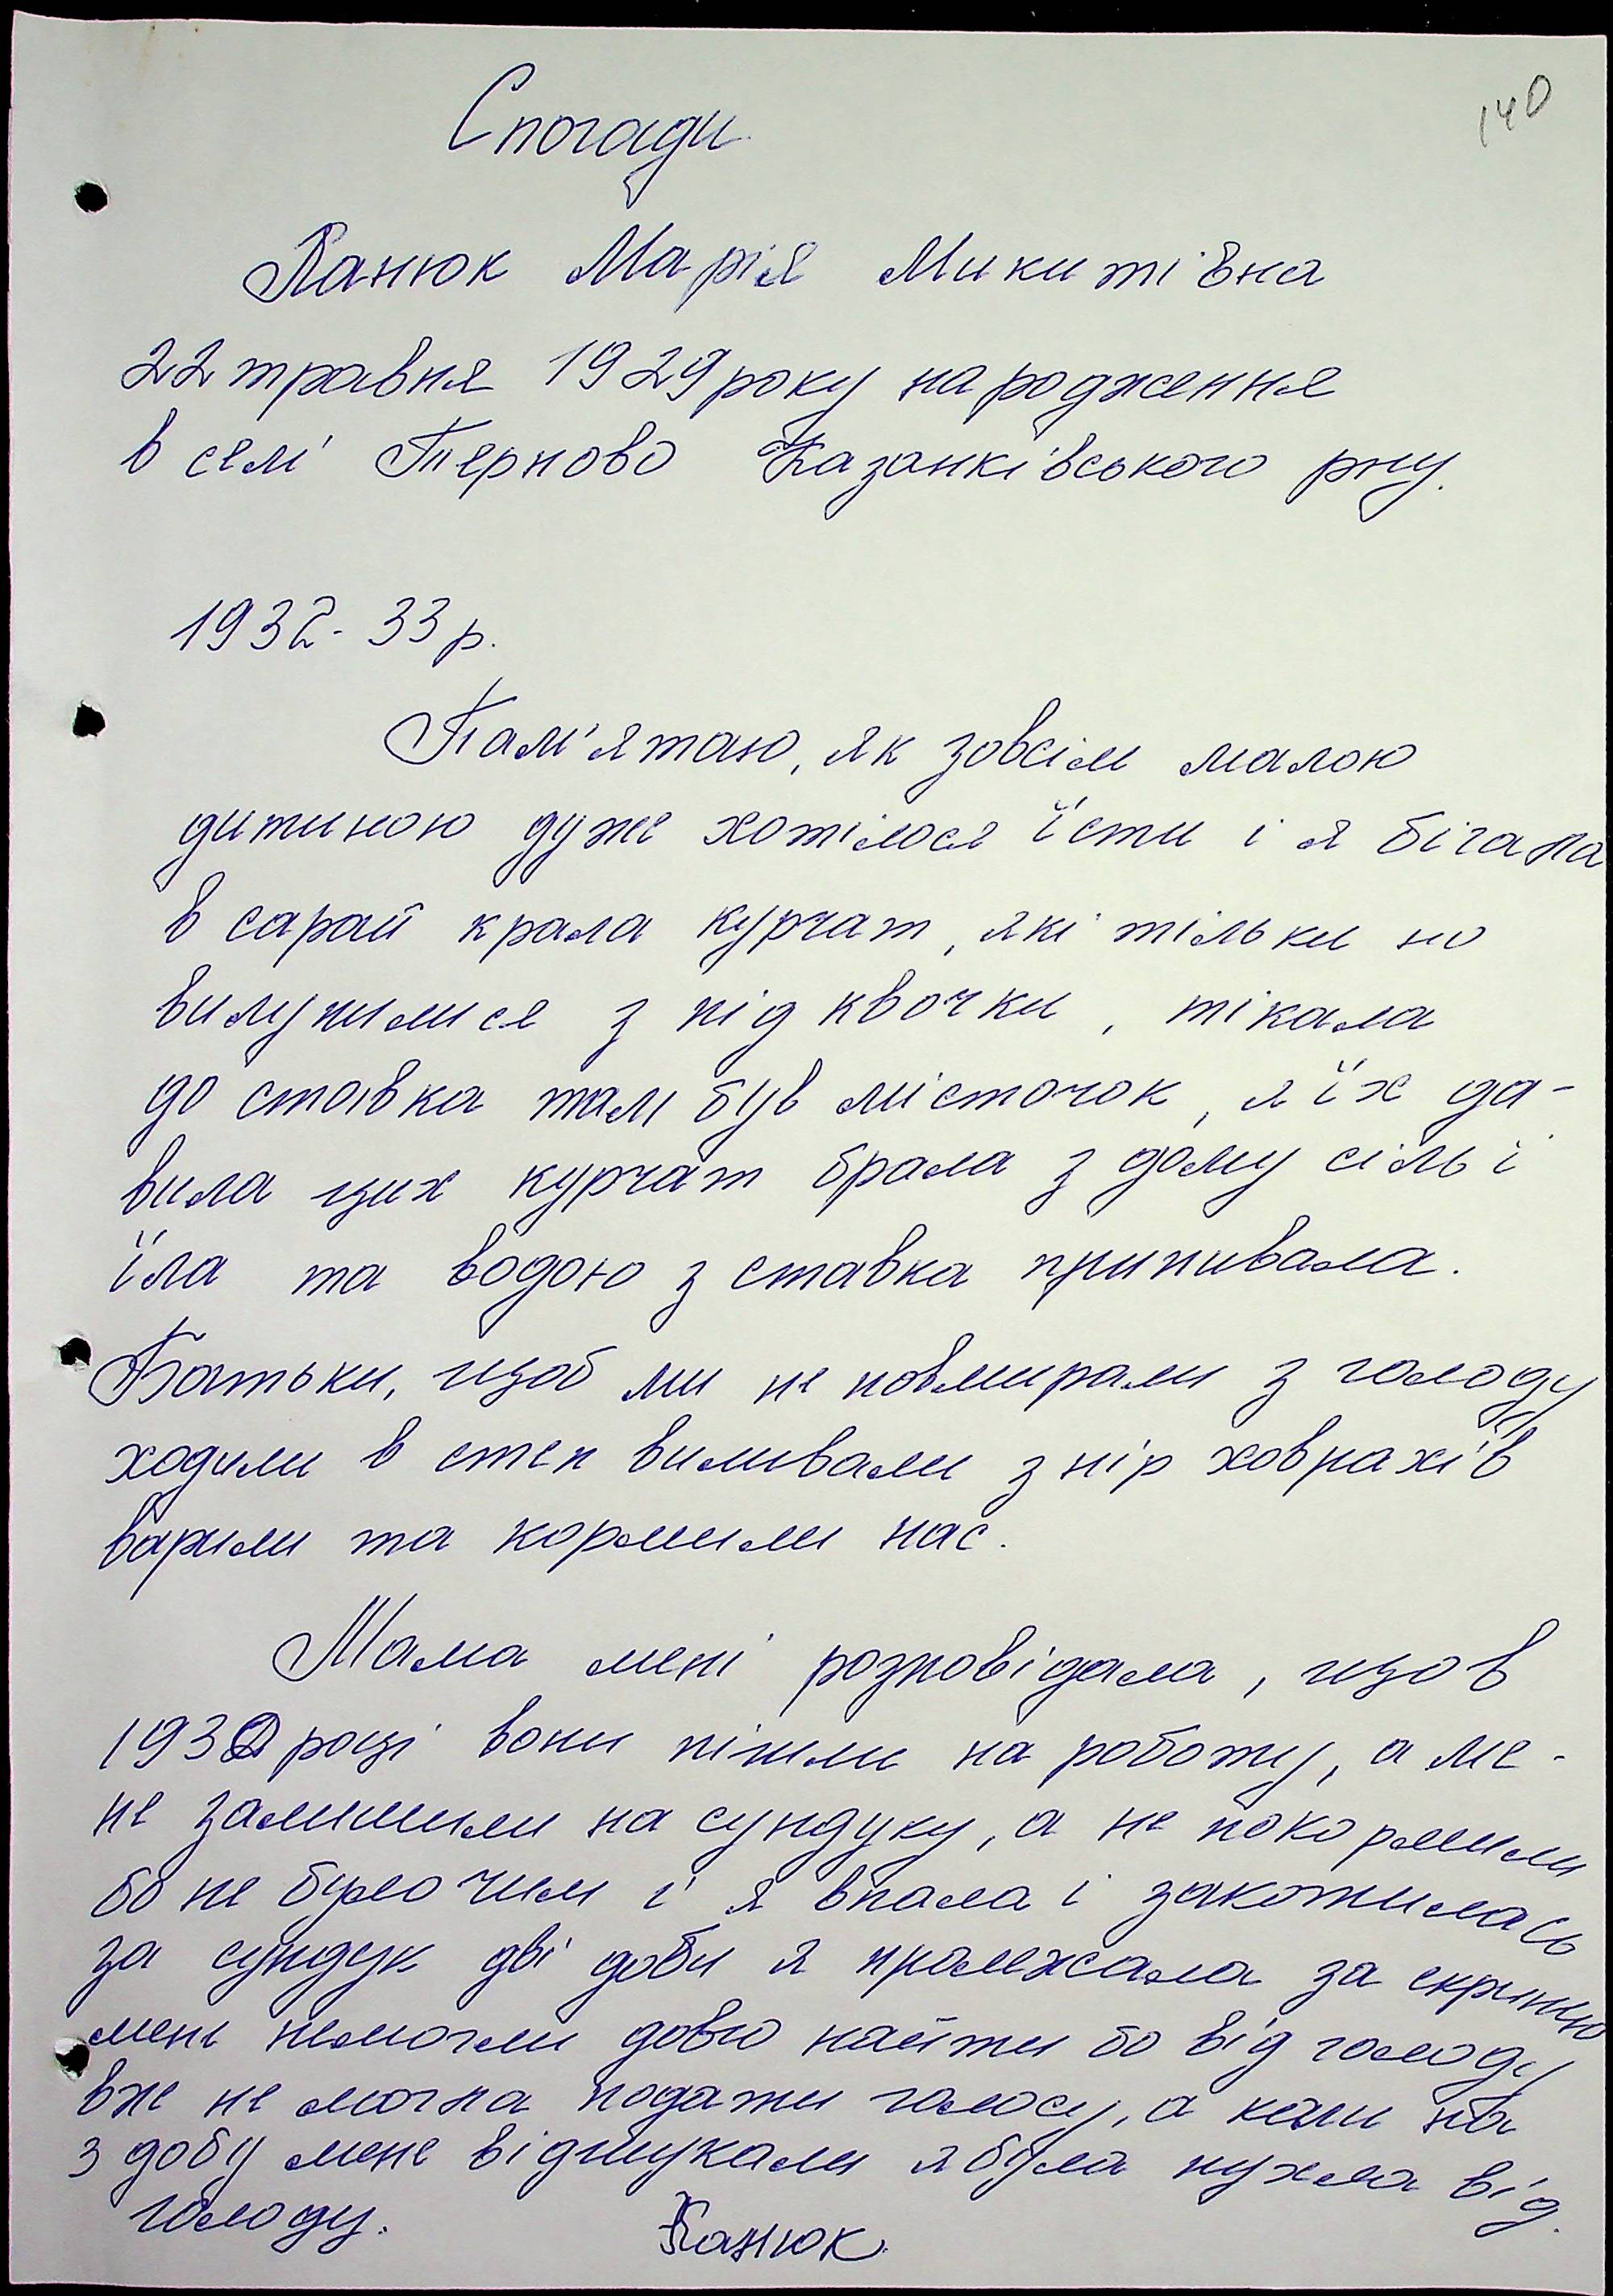 140
Спогади
Канюк Марія Микитівна
22 травня 1929 року народження
в селі Терново Казанківського рну.
1932-33 р.
Пам'ятаю, як зовсім малою
дитиною дуже хотілося їсти і я бігала
в сарай крала курчат, які тільки но
вилупилися з під квочки, тікала
до ставка там був місточок, я їх да-
вила цих курчат брала з дому сіль і
їла та водою з ставка припивала.
Батьки, щоб ми не повмирали з голоду
ходили в степ виливали з нір ховрахів
варили та кормили нас.
Мама мені розповідала, що в
1932 році вони пішли на роботу, а ме-
не залишили на сундуку, а не покормили
бо не було чим і я впала і закотилась
за сундук дві доби я пролежала за скринею
мене немогли довго найти бо від голоду
вже не могла подати голосу, а коли на
3 добу мене відшукали я була пухла від
голоду.
Канюк